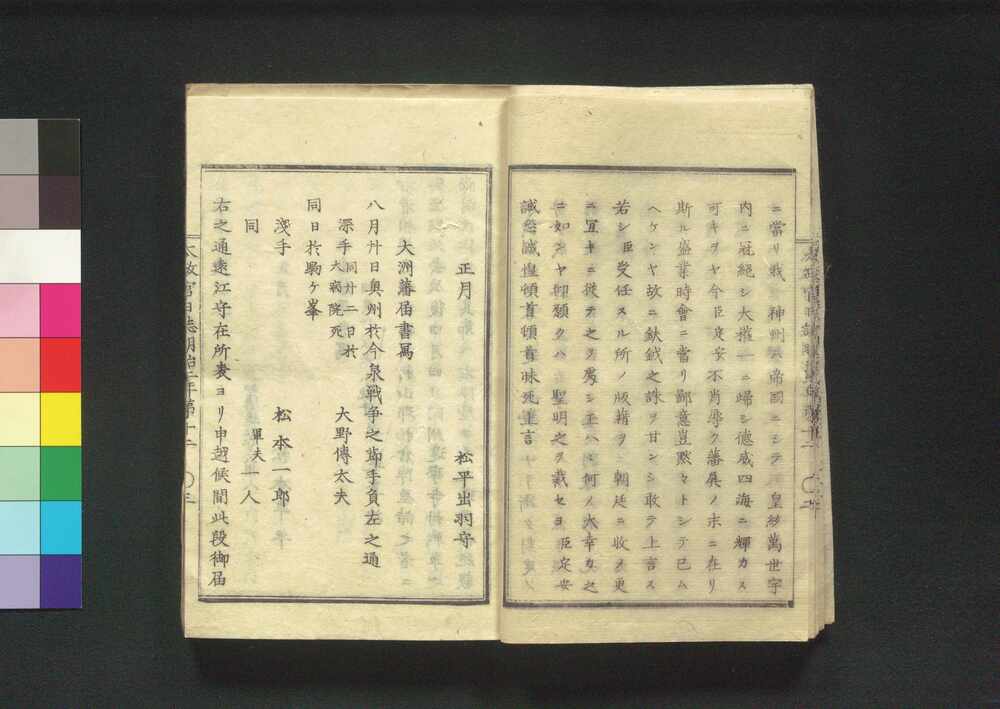 ニ當リ我 神州ハ帝國ニシテ 皇紗萬世宇
内ニ冠絶シ大權一ニ歸シ德威四海ニ輝カス
可キヲヤ今臣定安不肖辱ク藩屏ノ末ニ在リ
斯ル盛業時會ニ當リ鄙意豈黙々トシテ已ム
ヘケンヤ故ニ鈇鉞之誅ヲ甘ンシ敢テ上言ス
若シ臣受任スル所ノ版籍ヲ 朝廷ニ收メ更
ニ宜キニ従テ之ヲ處シ玉ハヽ何ノ大幸カ之
ニ如ンヤ仰願クハ 聖明之ヲ裁セヨ臣定安
誠恐誠惶頓首頓首昧死上言
正月 松平出羽守
大洲藩届書寫
八月廿日奥州於今泉戦争之節手負左之通
深手 同廿二日於大病院死 大野傳太夫
同日於駒ヶ峯
淺手 松本一太郎
同 軍夫一人
右之通遠江守在所表ヨリ申越候間此段御届
太政官日誌明治二年第十二 〇三